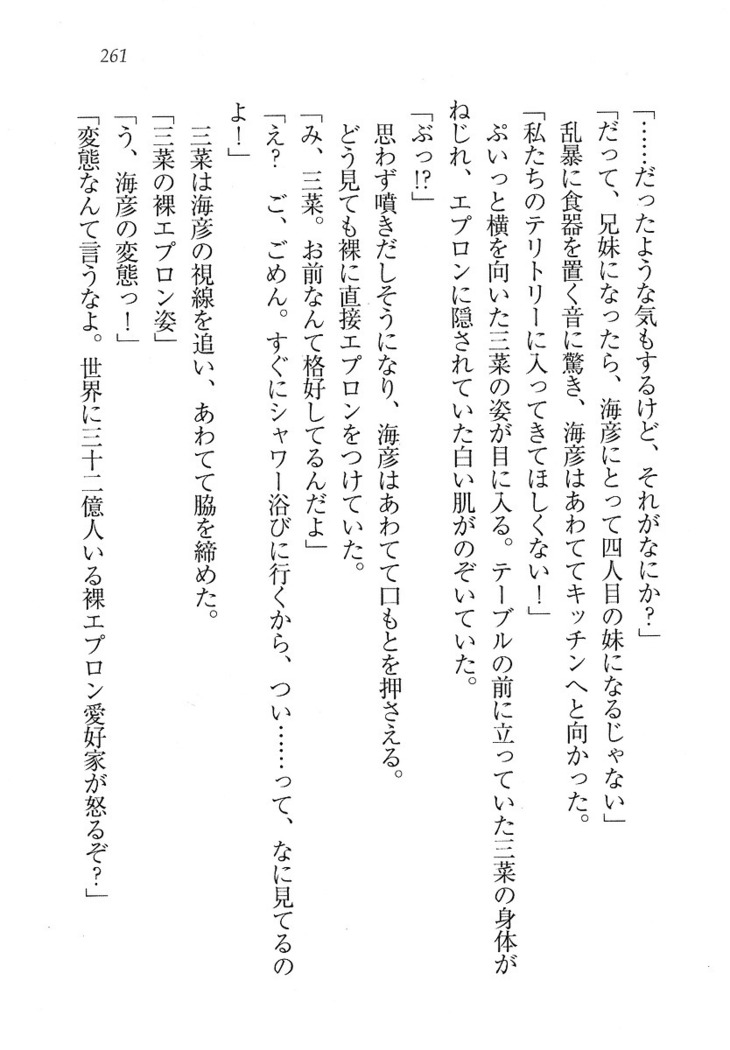 261
「……だったような気もするけど、それがなにか？」
「だって、兄妹になったら、海彦にとって四人目の妹になるじゃない」
乱暴に食器を置く音に驚き、海彦はあわててキッチンへと向かった。
「私たちのテリトリーに入ってきてほしくない！」
ぷいっと横を向いた三菜の姿が目に入る。テーブルの前に立っていた三菜の身体が
ねじれ、エプロンに隠されていた白い肌がのぞいていた。
「ぶっ!?」
思わず噴きだしそうになり、海彦はあわてて口もとを押さえる。
どう見ても裸に直接エプロンをつけていた。
「み、三菜。お前なんて格好してるんだよ」
「え？　ご、ごめん。すぐにシャワー浴びに行くから、つい……って、なに見てるの
よ！」
三菜は海彦の視線を追い、あわてて脇を締めた。
「三菜の裸エプロン姿」
「う、海彦の変態っ！」
「変態なんて言うなよ。世界に三十二億人いる裸エプロン愛好家が怒るぞ？」